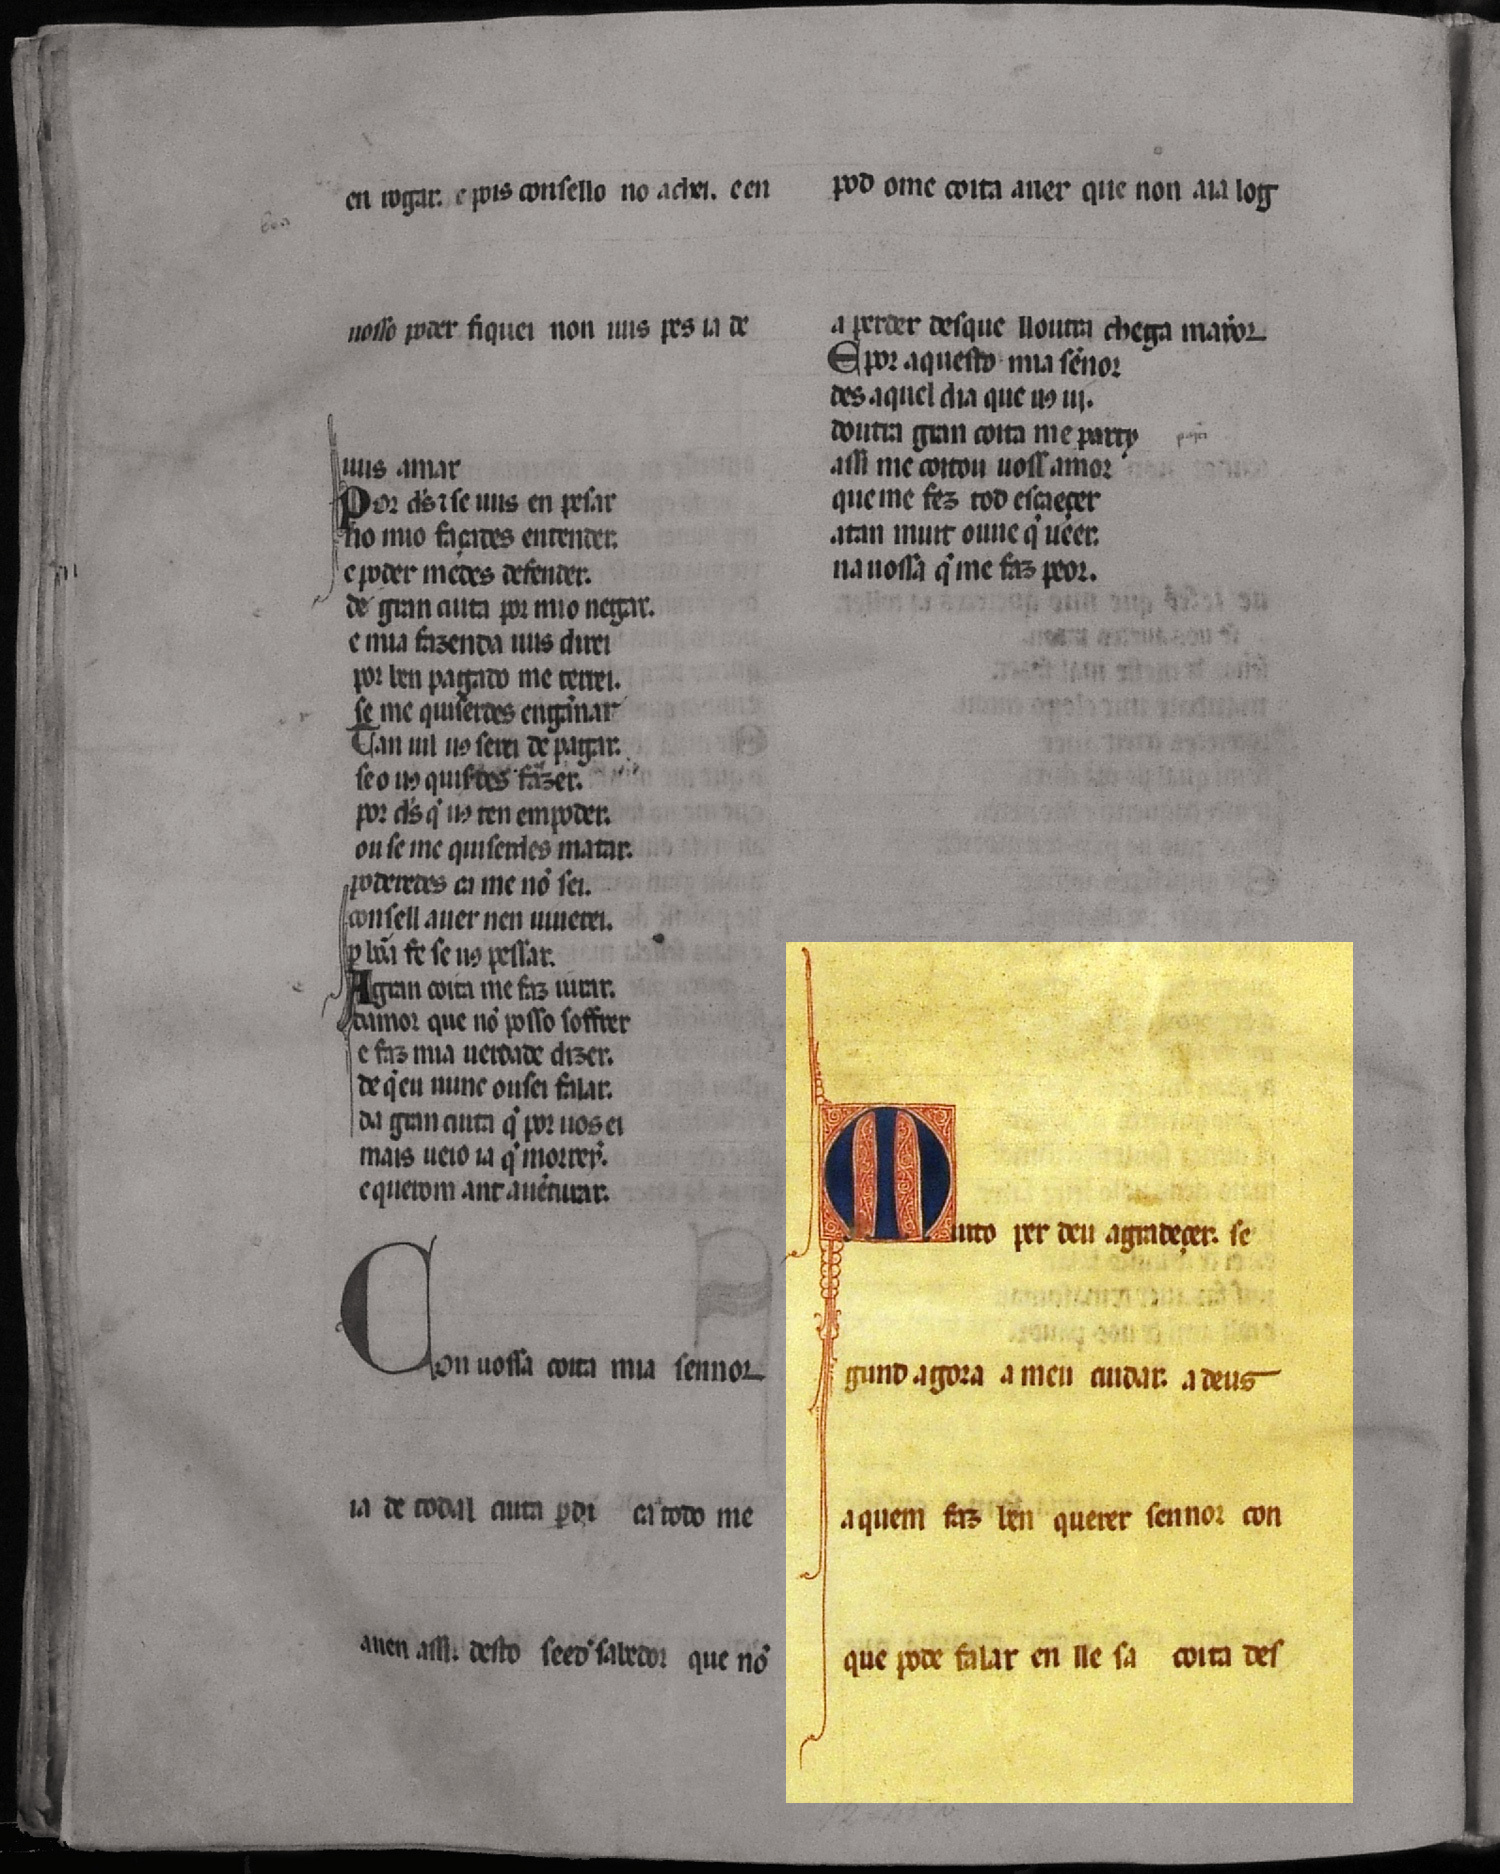 en rogar. e pois consello no achei. e en
uosso poder fiquei non uus pes ia de
uus amar
Por ds̃ ⁊ se uus en pesar
no mio façades entender.
e poder medes defender.
de gran cuita por mio negar.
e mia fazenda uus direi
por ben pagado me terrei.
se me quiserdes enganar
Tan uil uꝯ serei de pagar.
se o uꝯ quis̃des fazer.
por ds̃ q̃ uꝯ ten en poder.
ou se me quiserdes matar.
poderedes ca me nõ sei.
consell auer nen uiuerei.
ꝑ bõa fe se uꝯ pessar.
A gran coita me faz iurar.
damor que nõ posso soffrer
e faz mia uerdade dizer.
de q̃ eu nunc ousei falar.
da gran cuita q̃ por uos ei
mais ueio ia q̃ morrer̃.
e querom ant auẽturar.
Con uossa coita mia sennor
ia de todal cuita ꝑdi ca todo me
auen assi. desto seed sabedor que nõ
pod ome coita auer que non aia log
a perder desque lloutra chega mayor
E por aquesto mia sẽnor
des aquel dia que uꝯ ui.
doutra gran coita me party
assi me coitou uoss amor
que me fez tod escaeçer
atan muit oune q̃ ueer.
na uossa q̃ me faz peor.
Muito per deu agradeçer. se
gund agora a meu cuidar. a deus
a quem faz ben querer sennor con
que pode falar en lle sa coita des